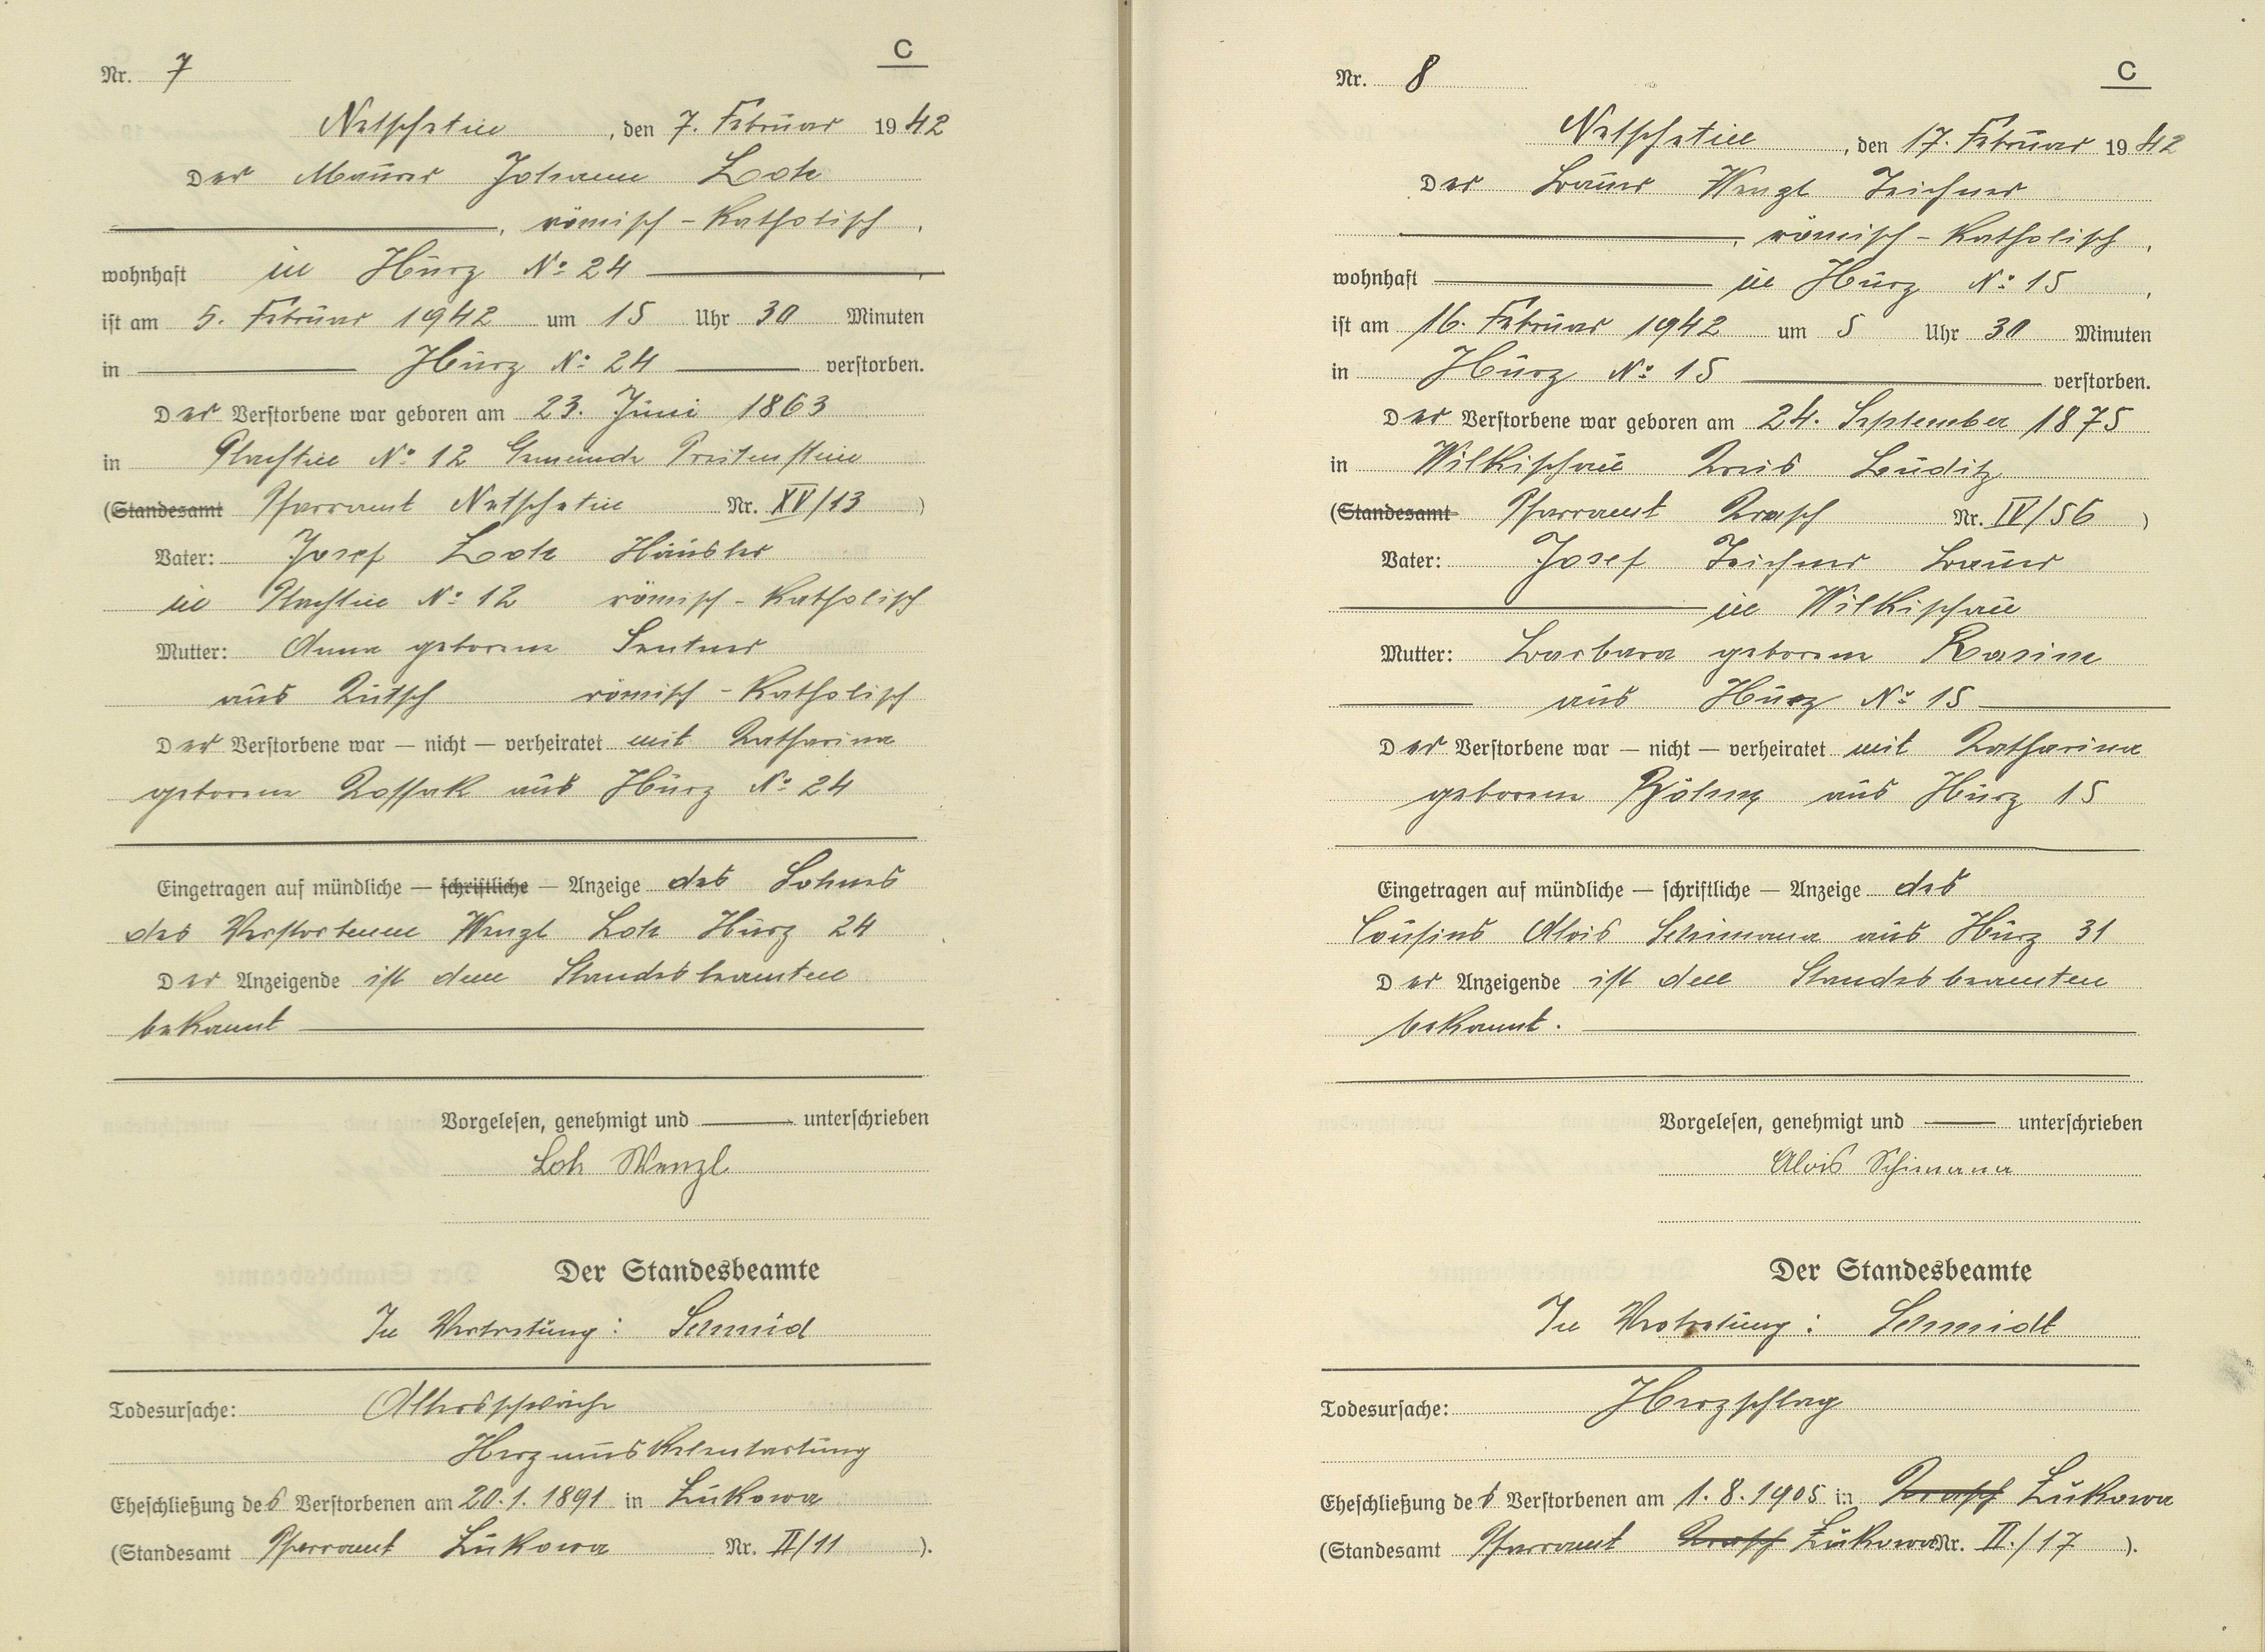 C
Nr. 7
Netschetin, den 7. Februar 1942
Der Maurer Johann Loh
, römisch-katholisch,
wohnhaft in Hurz No 24
ist am 5. Februar 1942 um 15 Uhr 30 Minuten
in Hurz No 24 verstorben.
Der Verstorbene war geboren am 23. Juni 1863
in Plachtin No 12 Gemeinde Preitenstein
(Standesamt Pfarramt Netschetin Nr. XV/13)
Vater: Josef Loh Häusler
in Plachtin No 12 römisch-katholisch
Mutter: Anna geborene Sentner
aus Kutsch römisch-katholisch
Der Verstorbene war — nicht — verheiratet mit Katharina
geborene Kossak aus Hurz No 24
Eingetragen auf mündliche — schriftliche — Anzeige des Sohnes
des Verstorbenen Wenzl Loh Hurz 24
Der Anzeigende ist dem Standesbeamten
bekannt
Vorgelesen, genehmigt und unterschrieben
Loh Wenzl
Der Standesbeamte
In Vertretung: Schmid
Todesursache: Altersschwäche
Herzmuskelentartung
Eheschließung des Verstorbenen am 20.1.1891 in Lukowa
(Standesamt Pfarramt Lukowa Nr. II/11).
C
Nr. 8
Netschetin, den 17. Februar 1942
Der Bauer Wenzl Teichner
, römisch-katholisch,
wohnhaft in Hurz No 15,
ist am 16. Februar 1942 um 5 Uhr 30 Minuten
in Hurz No 15 verstorben.
Der Verstorbene war geboren am 24. September 1875
in Wilkischau Kreis Luditz
(Standesamt Pfarramt Krasch Nr. IV/56)
Vater: Josef Teichner Bauer
in Wilkischau
Mutter: Barbara geborene Rasine
aus Hurz No 15
Der Verstorbene war — nicht — verheiratet mit Katharina
geborene Böhm aus Hurz 15
Eingetragen auf mündliche — schriftliche — Anzeige des
Cousins Alois Schimana aus Hurz 31
Der Anzeigende ist dem Standesbeamten
bekannt.
Vorgelesen, genehmigt und unterschrieben
Alois Schimana
Der Standesbeamte
In Vertretung: Schmidt
Todesursache: Herzschlag
Eheschließung des Verstorbenen am 1.8.1905 in Krasch Lukowa
(Standesamt Pfarramt Krasch Lukowa Nr. II./17).